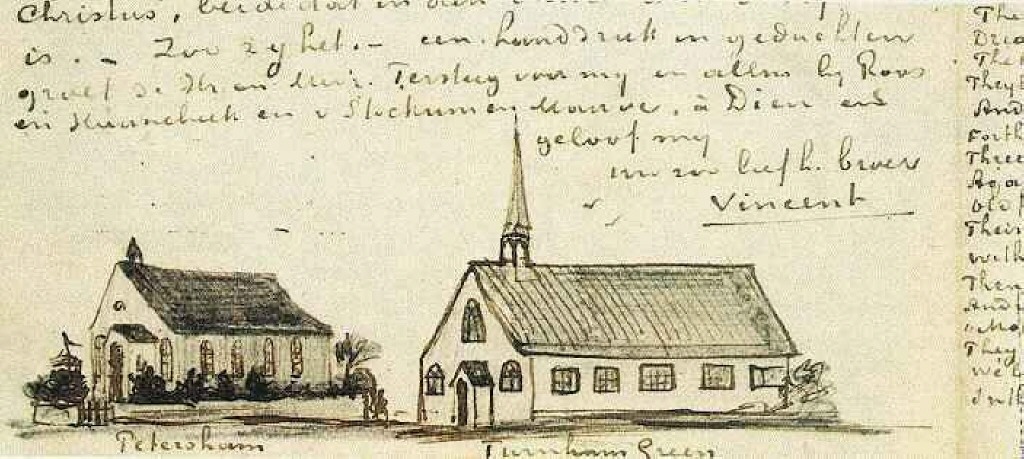 Christus,
is. – Zoo zy het. – een handdruk in gedachten
groet de Hr. en Mevr. Tersteeg voor my en allen by Roos
en Haanebeek en v Stockum en Mauve, à Dieu en
geloof my
uw zoo liefh. broer
Vincent
Petersham
Turnham Green
The
They
And
Forth
Three
Their
with
Then
And
They